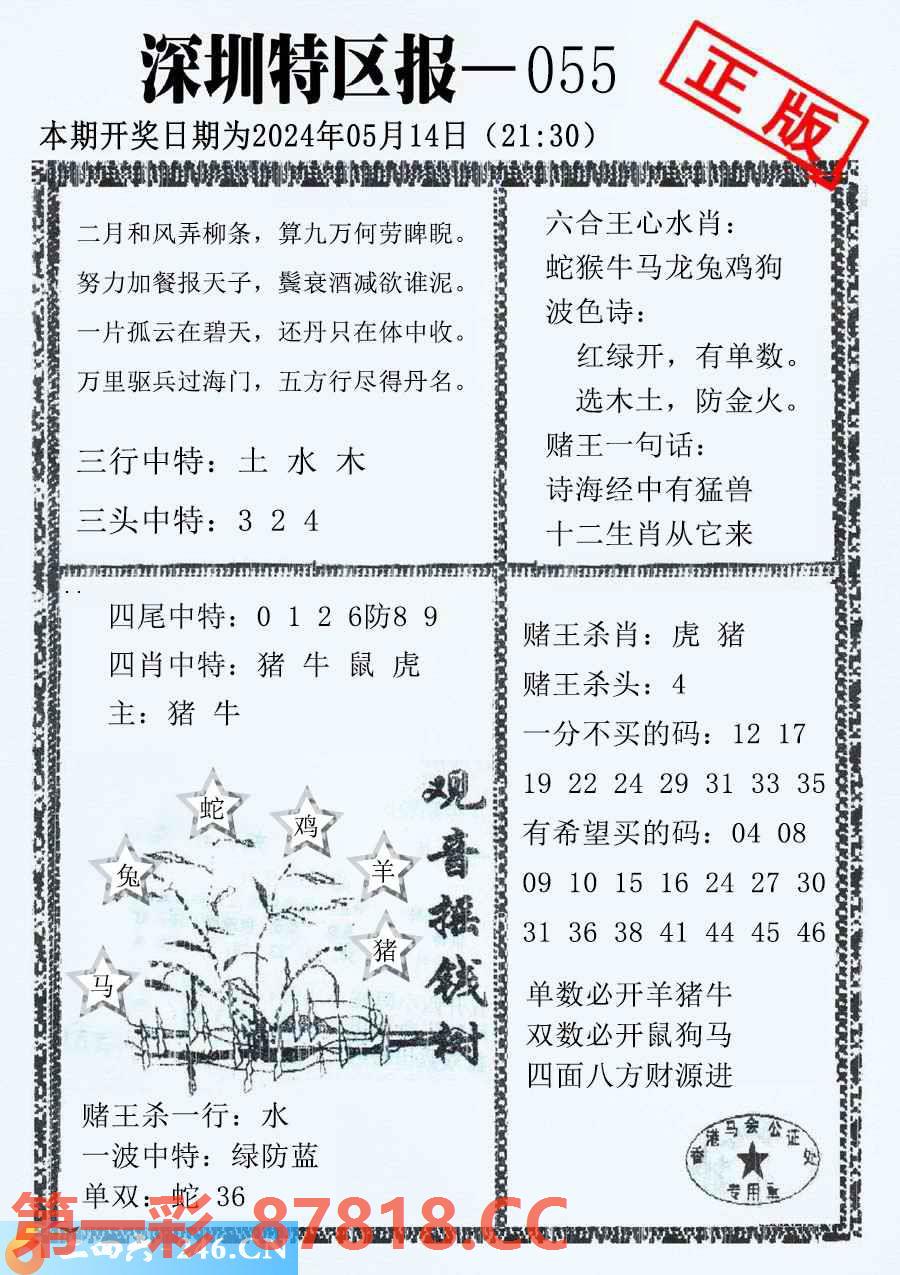 深圳特区报—055
正版
本期开奖日期为2024年05月14日（21:30）
二月和风弄柳条，算九万何劳睥睨。
努力加餐报天子，鬓衰酒减欲谁泥。
一片孤云在碧天，还丹只在体中收。
万里驱兵过海门，五方行尽得丹名。
三行中特：土 水 木
三头中特：3 2 4
六合王心水肖：
蛇猴牛马龙兔鸡狗
波色诗：
红绿开，有单数。
选木土，防金火。
赌王一句话：
诗海经中有猛兽
十二生肖从它来
四尾中特：0 1 2 6防8 9
四肖中特：猪 牛 鼠 虎
主：猪 牛
蛇
鸡
兔
羊
猪
马
观音摇钱树
赌王杀一行：水
一波中特：绿防蓝
单双：蛇 36
赌王杀肖：虎 猪
赌王杀头：4
一分不买的码：12 17
19 22 24 29 31 33 35
有希望买的码：04 08
09 10 15 16 24 27 30
31 36 38 41 44 45 46
单数必开羊猪牛
双数必开鼠狗马
四面八方财源进
香港马会公证处
专用章
第一彩 87818.CC
246.CN